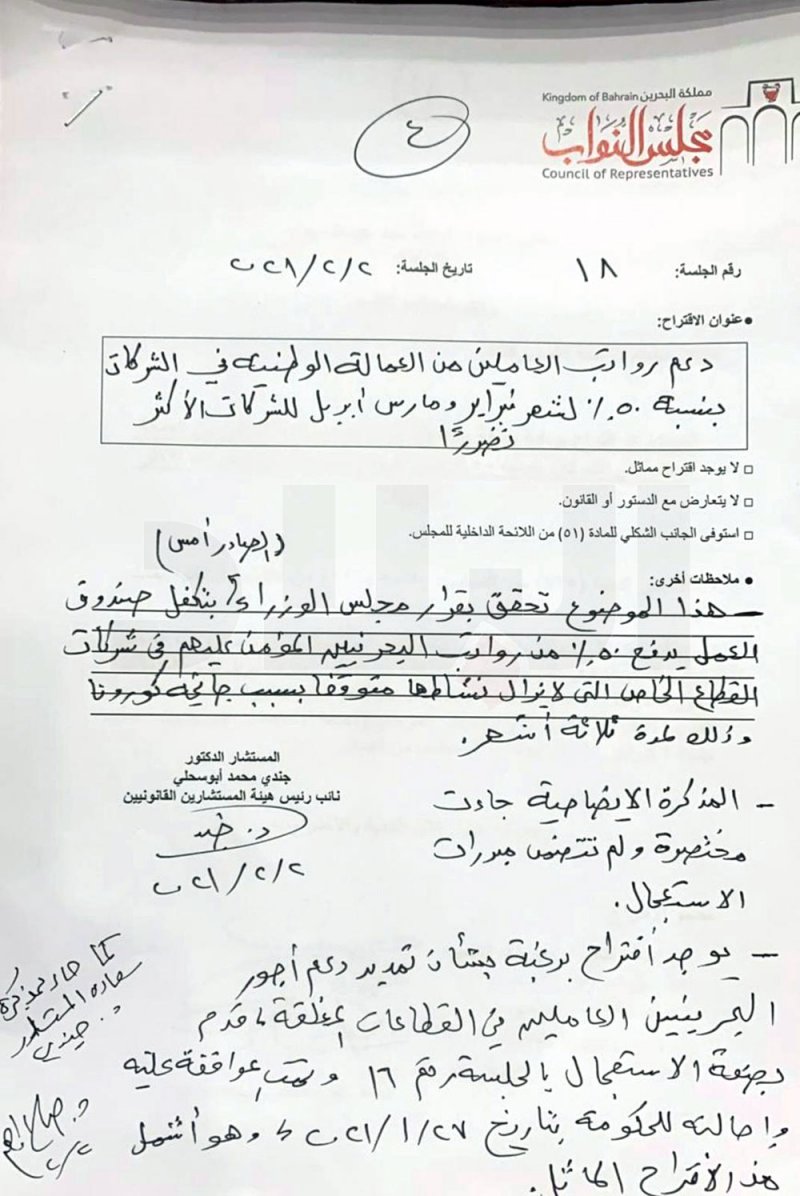 ٤
مملكة البحرين Kingdom of Bahrain
مجلس النواب
Council of Representatives
رقم الجلسة: ١٨ تاريخ الجلسة: ٢/٢/
● عنوان الاقتراح:
دعم رواتب العاملين من العمالة الوطنية في الشركات
بنسبة ٥٠٪ لشهر فبراير ومارس أبريل للشركات الأكثر
تضررًا
□ لا يوجد اقتراح مماثل.
□ لا يتعارض مع الدستور أو القانون.
□ استوفى الجانب الشكلي للمادة (٥١) من اللائحة الداخلية للمجلس.
(الصادر أمس)
● ملاحظات أخرى:
- هذا الموضوع تحقق بقرار مجلس الوزراء بتكفل صندوق
العمل بدفع ٥٠٪ من رواتب البحرينيين المؤمن عليهم في شركات
القطاع الخاص التي لا يزال نشاطها متوقفا بسبب جائحة كورونا
وذلك لمدة ثلاثة أشهر.
المستشار الدكتور
جندي محمد أبوسحلي
نائب رئيس هيئة المستشارين القانونيين
٢/٢/٢١
- المذكرة الايضاحية جاءت
مختصرة ولم تتضمن مبررات
الاستعجال.
- يوجد اقتراح برغبة بشأن تمديد دعم أجور
البحرينيين العاملين في القطاعات المغلقة مقدم
بصفة الاستعجال بالجلسة رقم ١٦ وتمت الموافقة عليه
وإحالته للحكومة بتاريخ ٢٧/١/٢١ وهو أشمل
هذا الاقتراح الماثل.
كما جاء بمذكرة
سعادة المستشار
د. جندي
د. صلاح
٢/٢